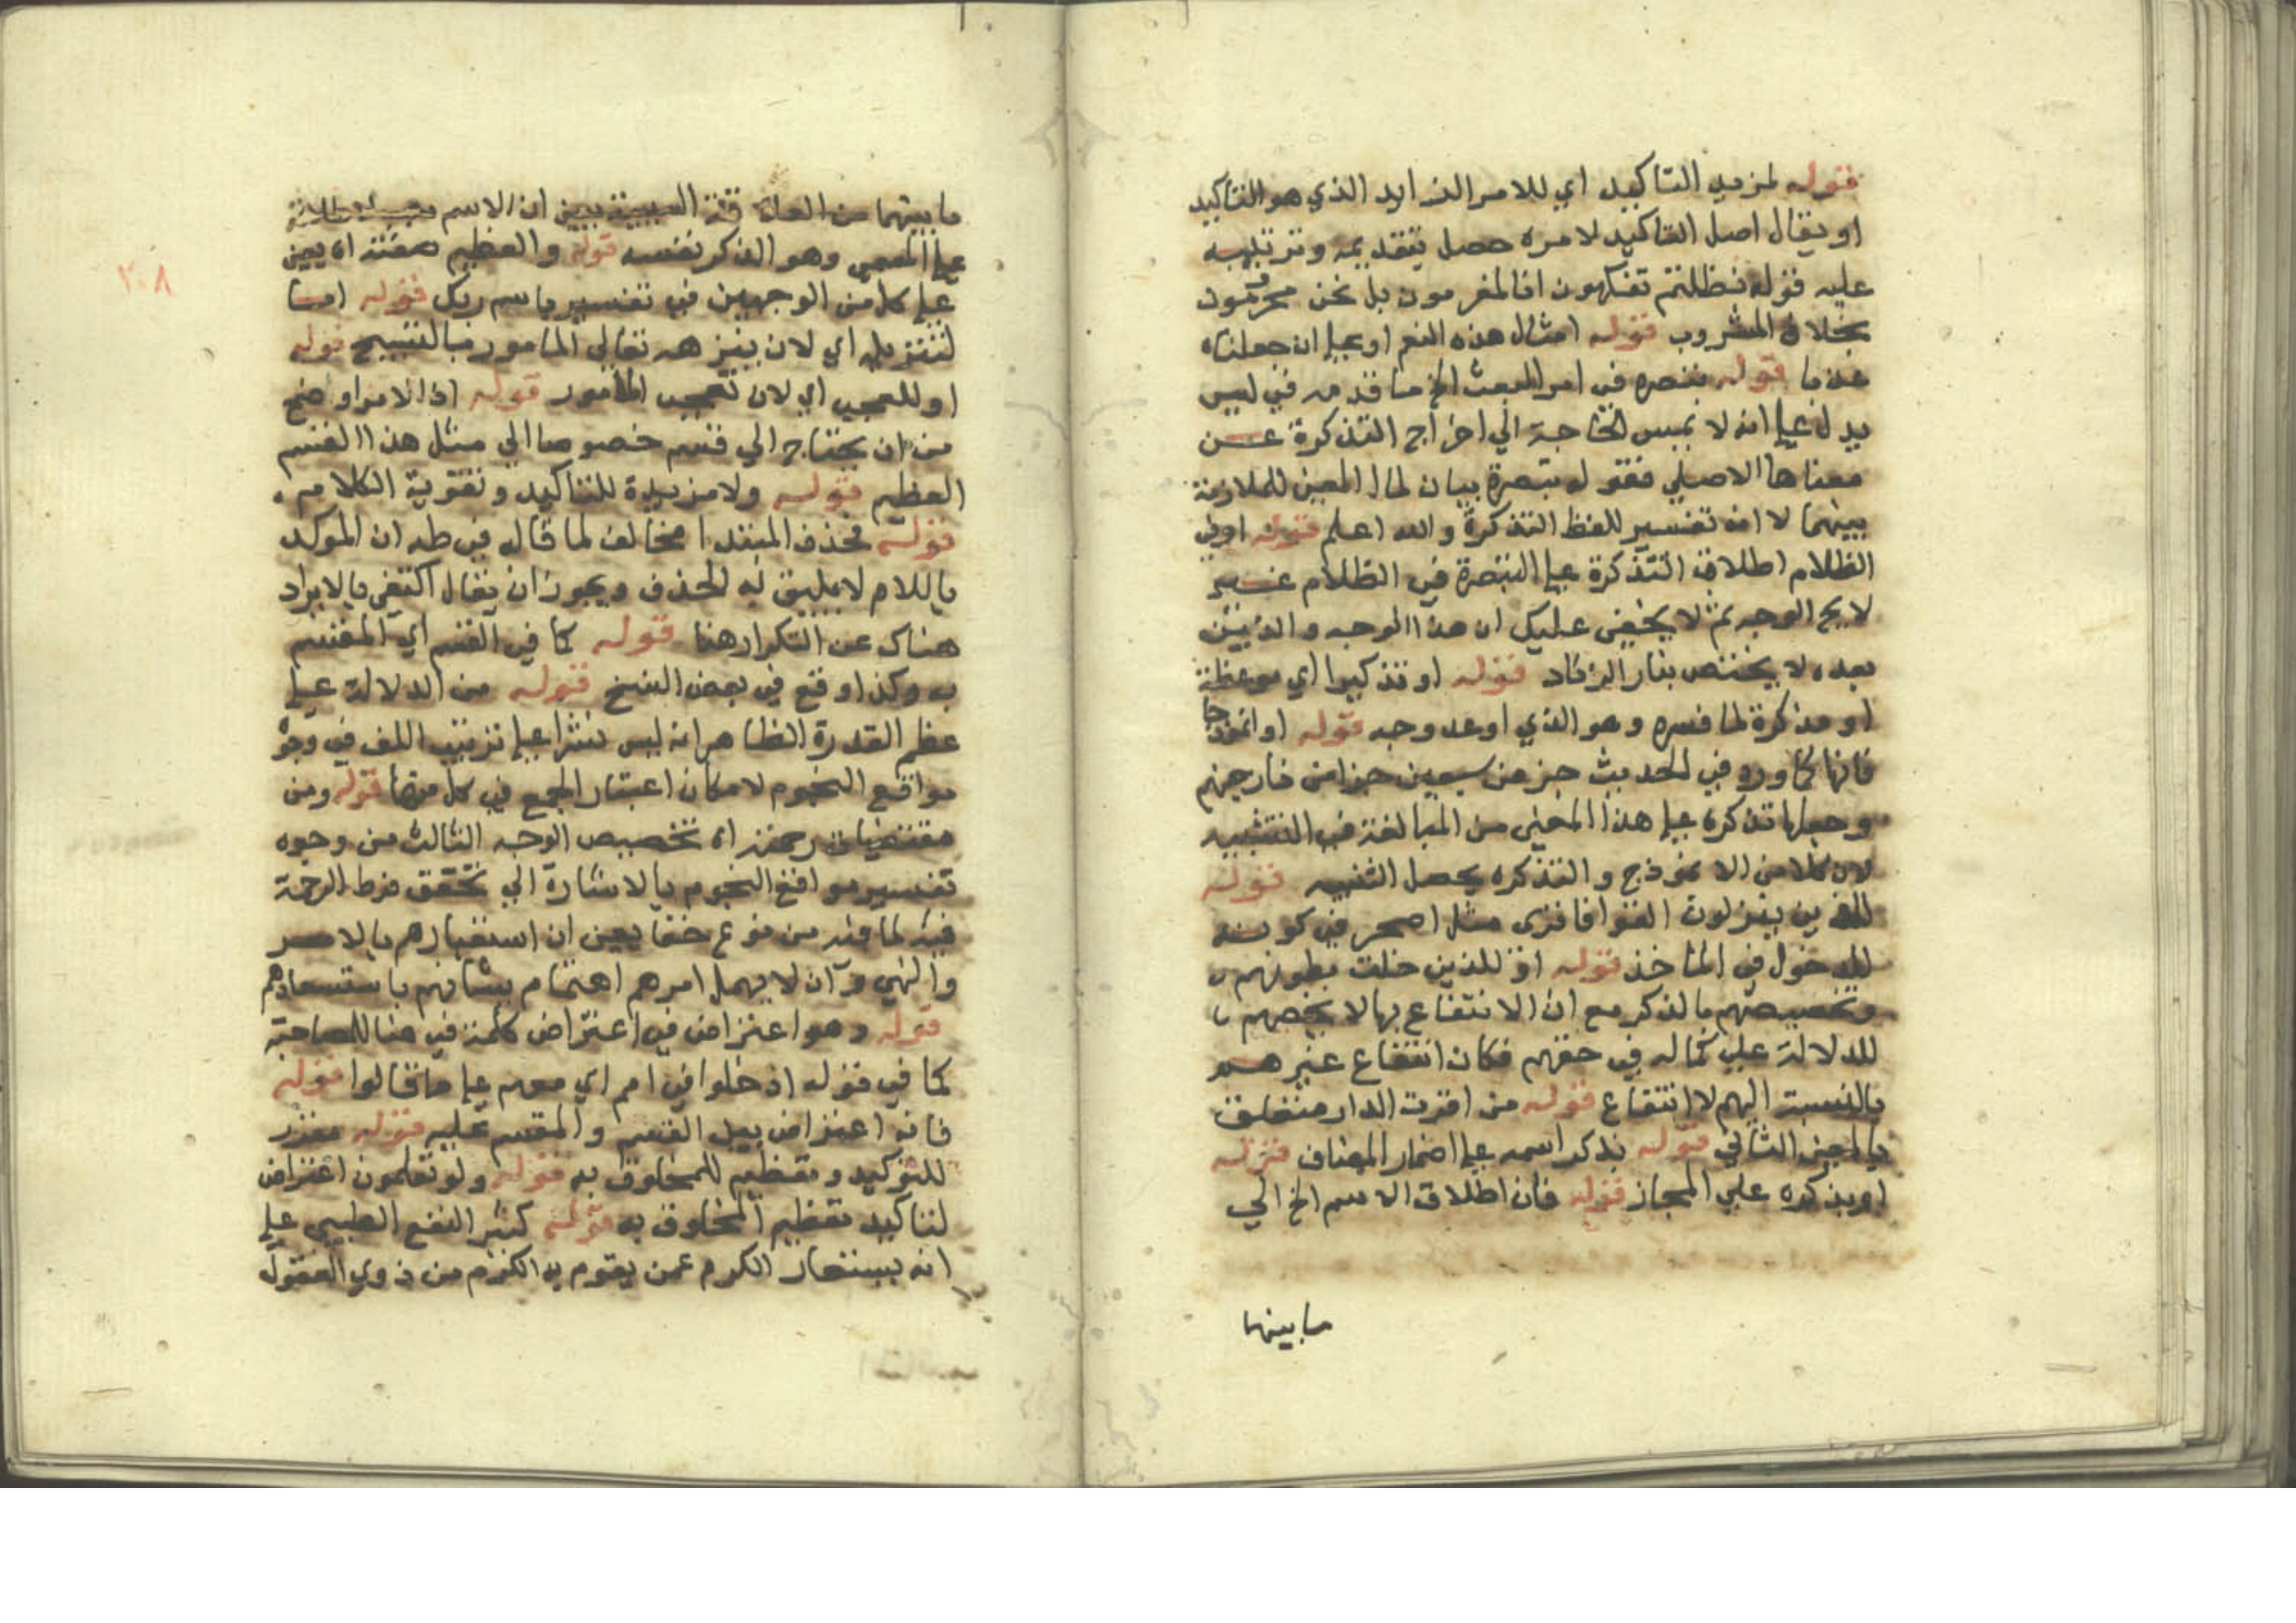 قوله لمزيد التاكيد اي للامر الزايد الذي هو التاكيد
او يقال اصل التاكيد لامره حصل بتقديمه وترتيبه
عليه قوله فظلتم تفكهون انا لمغرمون بل نحن محرومون
بخلاف المشروب قوله امثال هذه النعم او على ان جعلناه
عذبا قوله تبصرة في امر البعث الخ ما قدمه في ليس
يدل على انه لا يمس الحاجة الي اخراج التذكرة عن
معناها الاصلي فقوله تبصرة بيان لمال المعنى للملازمة
بينهما لا انه تفسير للفظ التذكرة والله اعلم قوله او في
الظلام اطلاق التذكرة على التبصرة في الظلام غير
لايح الوجه ثم لا يخفى عليك ان هذا الوجه والذين
بعده لا يختص بنار الزناد قوله او تذكيرا اي موعظة
او مذكرة لما فسره وهو الذي اوعد وجه قوله او انموذجا
فانها كما ورد في الحديث جزء من سبعين جزا من نار جهنم
وجعلها تذكره على هذا المعنى من المبالغة في التشبيه
لان كلا من الانموذج والتذكره يحصل التنبيه قوله
للذين ينزلون القوا فاقوى مثل اصحر في كونه
للدخول في الماخذ قوله او للذين خلت بطونهم
وتخصيصهم بالذكر مع ان الانتفاع بها لا يخصهم
للدلالة على كماله في حقهم فكان انتفاع غيرهم
بالنسبة اليهم لا انتفاع قوله من اقوت الدار متعلق
بالمعنى الثاني قوله بذكر اسمه على اضمار المضاف قوله
او بذكره علي المجاز قوله فان اطلاق الاسم الخ الي
ما بينهما
٢٠٨
ما بينهما من العلاقة السببية يبين ان الاسم
على المعنى وهو الذكر نفسه قوله والعظيم صفته اه يعين
على كل من الوجهين في تفسير باسم ربك قوله اما
لتنزيهه اي لان ينزهه تعالى المامور بالتسبيح قوله
او للعجب اي لان تعجب المامور قوله اذ الامر اوضح
من ان يحتاج الي قسم خصوصا الي مثل هذا القسم
العظيم قوله ولا مزيدة للتاكيد وتقوية الكلام
قوله فحذف المبتدا مخالف لما قال في طه ان الموكد
باللام لا يليق به الحذف ويجوز ان يقال اكتفى بالايراد
هناك عن التكرار هنا قوله كما في القسم اي المقسم
به وكذا وقع في بعض النسخ قوله من الدلالة على
عظم القدرة الظاهر انه ليس نشرا على ترتيب اللف في وجوه
مواقع النجوم لامكان اعتبار الجمع في كل منها قوله ومن
مقتضيات رحمته اه تخصيص الوجه الثالث من وجوه
تفسير مواقع النجوم بالاشارة الي تحقق فرط الرحمة
فيه لما فيه من نوع خفا يعين ان استغفارهم بالاسحر
والنهي وان لا يهمل امرهم اهتمام بشانهم باستسعادهم
قوله وهو اعتراض في اعتراض كلمة في هنا للمصاحبة
كما في قوله ادخلوا في امم اي معهم على ما قالوا قوله
فانه اعتراض بين القسم والمقسم عليه قوله مقرر
للتوكيد وتعظيم للمحلوف به قوله ولو تعلمون اعتراض
لتاكيد تعظيم المحلوف به قوله كثير النفع الطيبي على
انه يستعار الكرم عمن يقوم به الكرم من ذوي العقول